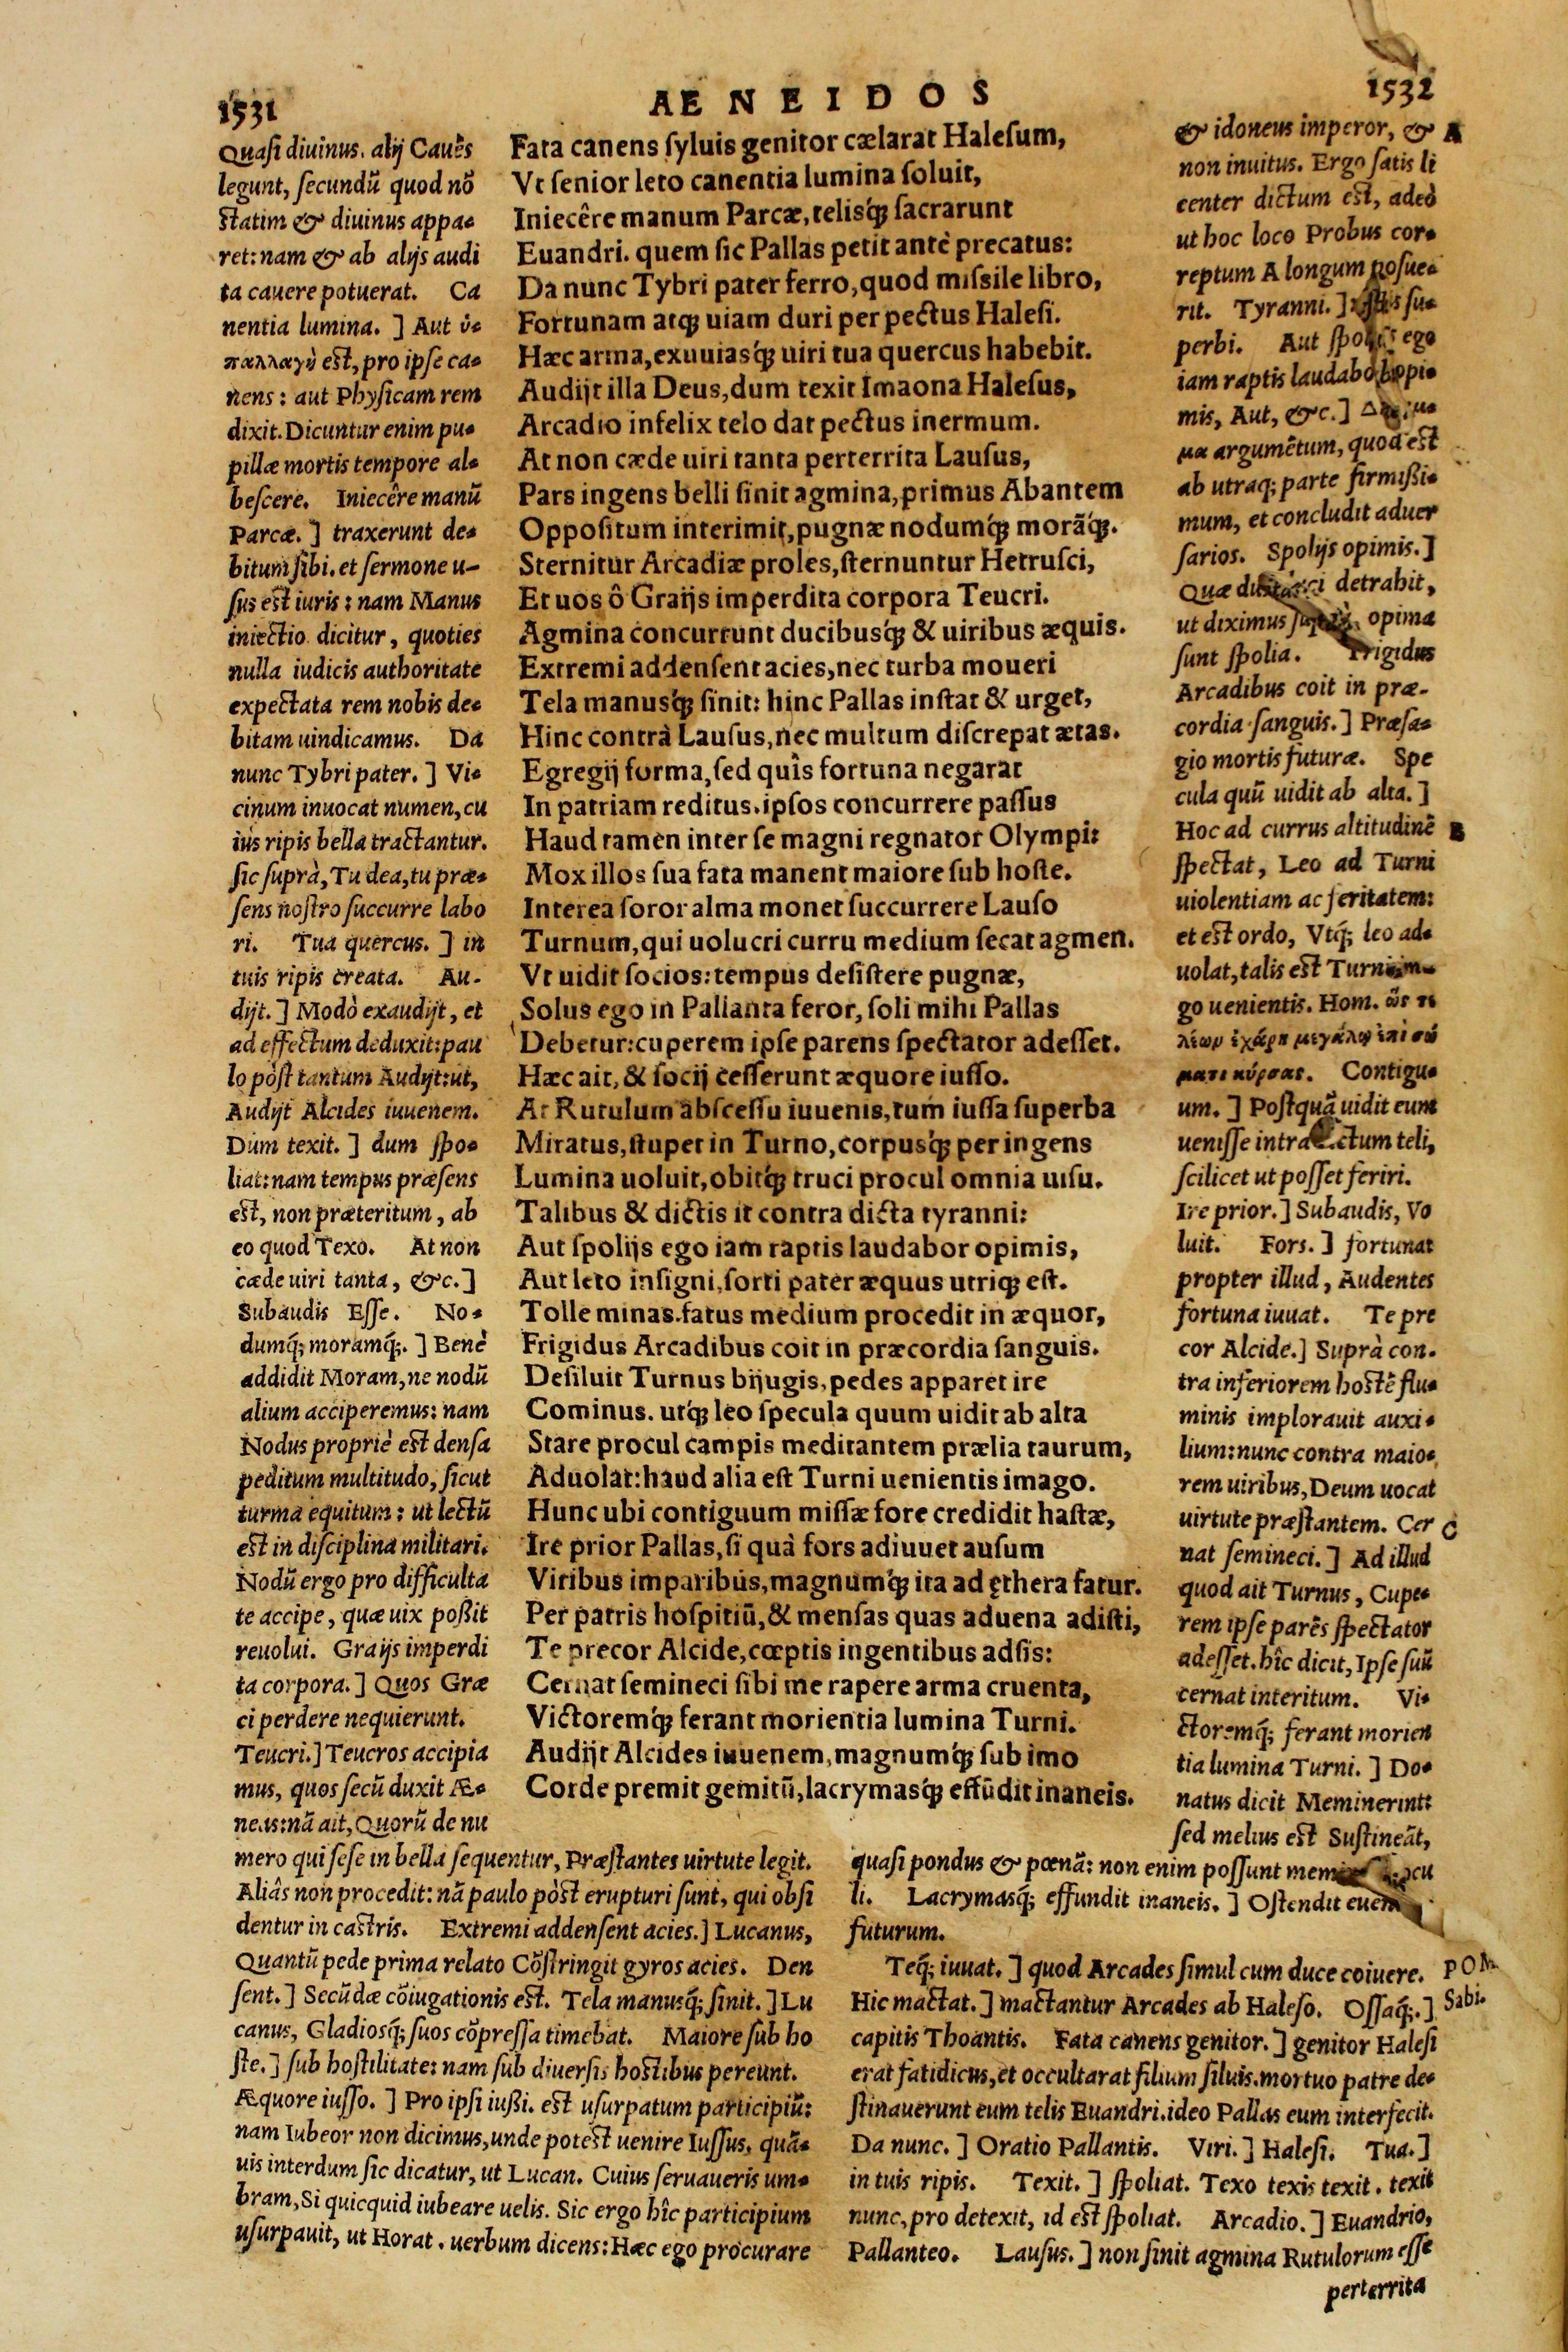 1531
AENEIDOS
1532
Quaſi diuinus. alij Cauēs
legunt, ſecundū quod nō
ſtatim & diuinus appa-
ret: nam & ab alijs audi
ta cauere potuerat. Ca
nentia lumina. ] Aut ὑ-
παλλαγὴ eſt, pro ipſe ca-
nens: aut Phyſicam rem
dixit. Dicuntur enim pu-
pillæ mortis tempore al-
beſcere. Iniecêre manū
Parcæ. ] traxerunt de-
bitum ſibi. et ſermone u-
ſus eſt iuris: nam Manus
iniectio dicitur, quoties
nulla iudicis authoritate
expectata rem nobis de-
bitam uindicamus. Da
nunc Tybri pater. ] Vi-
cinum inuocat numen, cu
ius ripis bella tractantur.
ſic ſuprà, Tu dea, tu præ-
ſens noſtro ſuccurre labo
ri. Tua quercus. ] in
tuis ripis creata. Au-
dijt. ] Modò exaudijt, et
ad effectum deduxit: pau
lo pòſt tantum Audijt: ut,
Audijt Alcides iuuenem.
Dum texit. ] dum ſpo-
liat: nam tempus præſens
eſt, non præteritum, ab
eo quod Texo. At non
cæde uiri tanta, &c. ]
Subaudis Eſſe. No-
dumq́; moramq́;. ] Benè
addidit Moram, ne nodū
alium acciperemus: nam
Nodus propriè eſt denſa
peditum multitudo, ſicut
turma equitum: ut lectū
eſt in diſciplina militari.
Nodū ergo pro difficulta
te accipe, quæ uix poßit
reuolui. Graijs imperdi
ta corpora. ] Quos Græ
ci perdere nequierunt.
Teucri. ] Teucros accipia
mus, quos ſecū duxit Æ-
neas: nā ait, Quorū de nu
mero qui ſeſe in bella ſequentur, Præſtantes uirtute legit.
Aliâs non procedit: nā paulo pòſt erupturi ſunt, qui obſi
dentur in caſtris. Extremi addenſent acies. ] Lucanus,
Quantū pede prima relato Cōſtringit gyros acies. Den
ſent. ] Secūdæ cōiugationis eſt. Tela manusq́; ſinit. ] Lu
canus, Gladiosq́; ſuos cōpreſſa timebat. Maiore ſub ho
ſte. ] ſub hoſtilitate: nam ſub diuerſis hoſtibus pereunt.
Æquore iuſſo. ] Pro ipſi iußi. eſt uſurpatum participiū:
nam Iubeor non dicimus, unde poteſt uenire Iuſſus. quā-
uis interdum ſic dicatur, ut Lucan. Cuius ſeruaueris um-
bram, Si quicquid iubeare uelis. Sic ergo hîc participium
uſurpauit, ut Horat. uerbum dicens: Hæc ego procurare
Fata canens ſyluis genitor cælarat Haleſum,
Vt ſenior leto canentia lumina ſoluit,
Iniecêre manum Parcæ, telisq́; ſacrarunt
Euandri. quem ſic Pallas petit antè precatus:
Da nunc Tybri pater ferro, quod miſsile libro,
Fortunam atq; uiam duri per pectus Haleſi.
Hæc arma, exuuiasq́; uiri tua quercus habebit.
Audijt illa Deus, dum texit Imaona Haleſus,
Arcadio infelix telo dat pectus inermum.
At non cæde uiri tanta perterrita Lauſus,
Pars ingens belli ſinit agmina, primus Abantem
Oppoſitum interimit, pugnæ nodumq́; morāq́;.
Sternitur Arcadiæ proles, ſternuntur Hetruſci,
Et uos ô Graijs imperdita corpora Teucri.
Agmina concurrunt ducibusq́; & uiribus æquis.
Extremi addenſent acies, nec turba moueri
Tela manusq́; ſinit: hinc Pallas inſtat & urget,
Hinc contrà Lauſus, nec multum diſcrepat ætas.
Egregij forma, ſed quîs fortuna negarat
In patriam reditus. ipſos concurrere paſſus
Haud tamen inter ſe magni regnator Olympi:
Mox illos ſua fata manent maiore ſub hoſte.
Interea ſoror alma monet ſuccurrere Lauſo
Turnum, qui uolucri curru medium ſecat agmen.
Vt uidit ſocios: tempus deſiſtere pugnæ,
Solus ego in Pallanta feror, ſoli mihi Pallas
Debetur: cuperem ipſe parens ſpectator adeſſet.
Hæc ait, & ſocij ceſſerunt æquore iuſſo.
At Rutulum abſceſſu iuuenis, tum iuſſa ſuperba
Miratus, ſtupet in Turno, corpusq́; per ingens
Lumina uoluit, obitq́; truci procul omnia uiſu.
Talibus & dictis it contra dicta tyranni:
Aut ſpolijs ego iam raptis laudabor opimis,
Aut leto inſigni, ſorti pater æquus utriq; eſt.
Tolle minas. fatus medium procedit in æquor,
Frigidus Arcadibus coit in præcordia ſanguis.
Deſiluit Turnus bijugis, pedes apparet ire
Cominus. utq́; leo ſpecula quum uidit ab alta
Stare procul campis meditantem prælia taurum,
Aduolat: haud alia eſt Turni uenientis imago.
Hunc ubi contiguum miſſæ fore credidit haſtæ,
Ire prior Pallas, ſi quà fors adiuuet auſum
Viribus imparibus, magnumq́; ita ad ęthera fatur.
Per patris hoſpitiū, & menſas quas aduena adiſti,
Te precor Alcide, cœptis ingentibus adſis:
Cernat ſemineci ſibi me rapere arma cruenta,
Victoremq́; ferant morientia lumina Turni.
Audijt Alcides iuuenem, magnumq́; ſub imo
Corde premit gemitū, lacrymasq́; effūdit inaneis.
& idoneus imperor, & A
non inuitus. Ergo ſatis li
center dictum eſt, adeò
ut hoc loco Probus cor-
reptum A longum poſue-
rit. Tyranni. ] ſu-
perbi. Aut ſpolijs ego
iam raptis laudabor opi-
mis, Aut, &c. ]
μα argumētum, quod eſt
ab utraq; parte firmißi-
mum, et concludit aduer
ſarios. Spolijs opimis. ]
Quæ detrahit,
ut diximus opima
ſunt ſpolia. Frigidus
Arcadibus coit in præ-
cordia ſanguis. ] Præſa-
gio mortis futuræ. Spe
cula quū uidit ab alta. ]
Hoc ad currus altitudinē B
ſpectat, Leo ad Turni
uiolentiam ac feritatem:
et eſt ordo, Vtq́; leo ad-
uolat, talis eſt Turni im-
go uenientis. Hom. ὥς τε
λέων ἐχάρη μεγάλῳ ἐπὶ σώ
ματι κύρσας. Contigu-
um. ] Poſtquā uidit eum
ueniſſe intra teli,
ſcilicet ut poſſet feriri.
Ire prior. ] Subaudis, Vo
luit. Fors. ] fortunat
propter illud, Audentes
fortuna iuuat. Te pre
cor Alcide. ] Suprà con-
tra inferiorem hoſtē flu-
minis implorauit auxi-
lium: nunc contra maio-
rem uiribus, Deum uocat
uirtute præſtantem. Cer C
nat ſemineci. ] Ad illud
quod ait Turnus, Cupe-
rem ipſe parēs ſpectator
adeſſet. hîc dicit, Ipſe ſuū
cernat interitum. Vi-
ctoremq́; ferant morien
tia lumina Turni. ] Do-
natus dicit Meminerint:
ſed melius eſt Suſtineāt,
quaſi pondus & pœnā: non enim poſſunt
li. Lacrymasq́; effundit inaneis. ] Oſtendit
futurum.
Teq́; iuuat. ] quod Arcades ſimul cum duce coiuere. POM.
Hic mactat. ] mactantur Arcades ab Haleſo. Oſſaq́;. ] Sabi.
capitis Thoantis. Fata canens genitor. ] genitor Haleſi
erat fatidicus, et occultarat filium ſiluis. mortuo patre de-
ſtinauerunt eum telis Euandri. ideo Pallas eum interfecit.
Da nunc. ] Oratio Pallantis. Viri. ] Haleſi. Tua. ]
in tuis ripis. Texit. ] ſpoliat. Texo texis texit. texit
nunc, pro detexit, id eſt ſpoliat. Arcadio. ] Euandrio,
Pallanteo. Lauſus. ] non ſinit agmina Rutulorum eſſe
perterrita